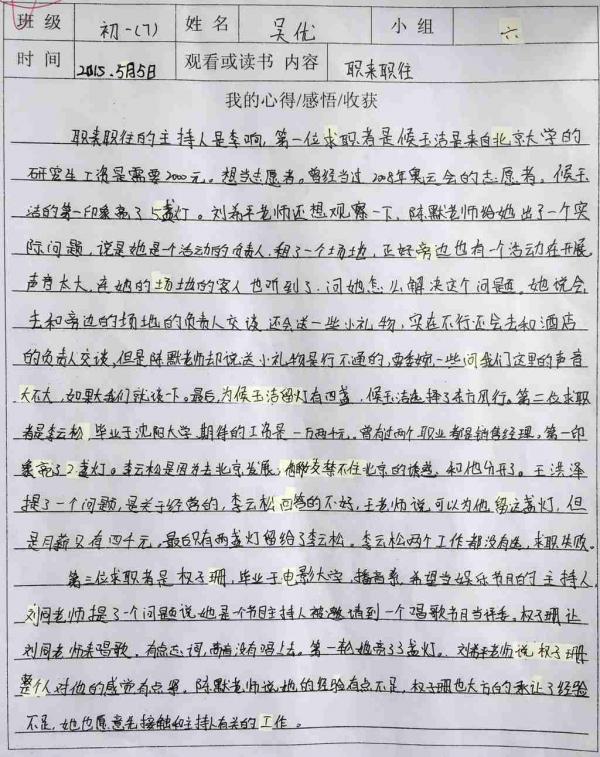 班级 初一(7) 姓名 吴优 小组 六
时间 2015.5月5日 观看或读书 内容 职来职往
我的心得/感悟/收获
职来职往的主持人是李响,第一位求职者是候玉洁是来自北京大学的
研究生工资是需要2000元。想当志愿者。曾经当过2008年奥运会的志愿者,候玉
洁的第一印象亮了15盏灯。刘希平老师还想观察一下,陈默老师给她出了一个实
际问题,说是她是一个活动的负责人,租了一个场地,正好旁边也有一个活动在开展
声音太大,在她的场地的客人也听到了,问她怎么解决这个问题。她说会
去和旁边的场地的负责人交谈,还会送一些小礼物,实在不行还会去和酒店
的负责人交谈,但是陈默老师却说送小礼物是行不通的,要委婉一些问我们这里的声音
大不大,如果大我们就谈一下。最后,为候玉洁留灯有四盏,候玉洁选择了东方风行。第二位求职
者是李云松,毕业于沈阳大学,期待的工资是一万两千元,曾有过两个职业都是销售经理。第一印
象亮了2盏灯。李云松是因为去北京发展,禁不住北京的诱惑,和他分开了。王洪泽
提了一个问题,是关于经营的,李云松回答的不好,王老师说可以为他留这盏灯,但
是月薪只有四千元。最后只有两盏灯留给了李云松。李云松两个工作都没有选,求职失败。
第三位求职者是权子珊,毕业于电影大学,播音系,希望当娱乐节目的主持人,
刘同老师提了一个问题说她是个节目主持人被邀请到一个唱歌节目当评委。权子珊让
刘同老师来唱歌,有点忘词,没有唱上去。第一轮她亮了3盏灯。刘希平老师说,权子珊
整个人对他的感觉有点, 陈默老师说她的经验有点不足,权子珊也大方的承认了经验
不足,她也愿意先接触和主持人有关的工作。